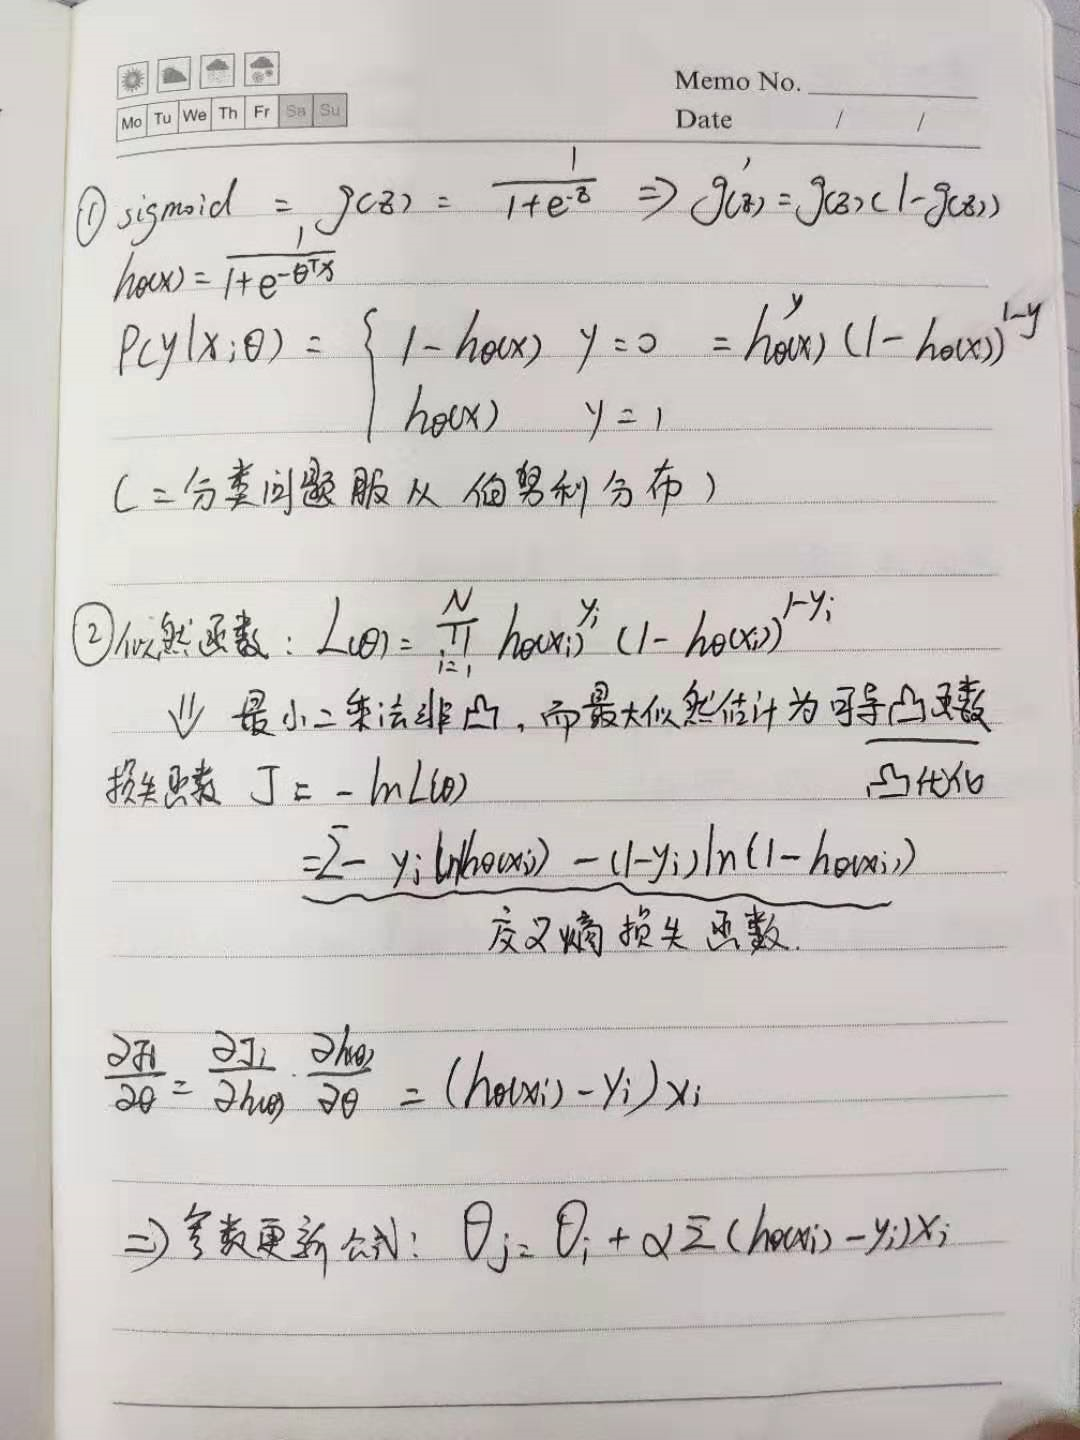 Memo No.
Mo Tu We Th Fr Sa Su
Date / /
① sigmoid = g(z) = 1/(1+e^-z) ⇒ g'(z) = g(z)(1-g(z))
hθ(x) = 1/(1+e^-θ^Tx)
P(y|x;θ) = { 1-hθ(x) y=0 = hθ(x)^y (1-hθ(x))^1-y
hθ(x) y=1
(二分类问题服从伯努利分布)
② 似然函数: L(θ) = ∏_{i=1}^N hθ(xi)^yi (1-hθ(xi))^1-yi
⇓ 最小二乘法非凸,而最大似然估计为可导凸函数
损失函数 J = -lnL(θ) 凸优化
=Σ- yi ln(hθ(xi)) - (1-yi)ln(1-hθ(xi))
交叉熵损失函数.
∂Ji/∂θ = ∂Ji/∂h(θ) · ∂h(θ)/∂θ = (hθ(xi)-yi)xi
⇒ 参数更新公式: θj = θi + αΣ(hθ(xi)-yi)xi